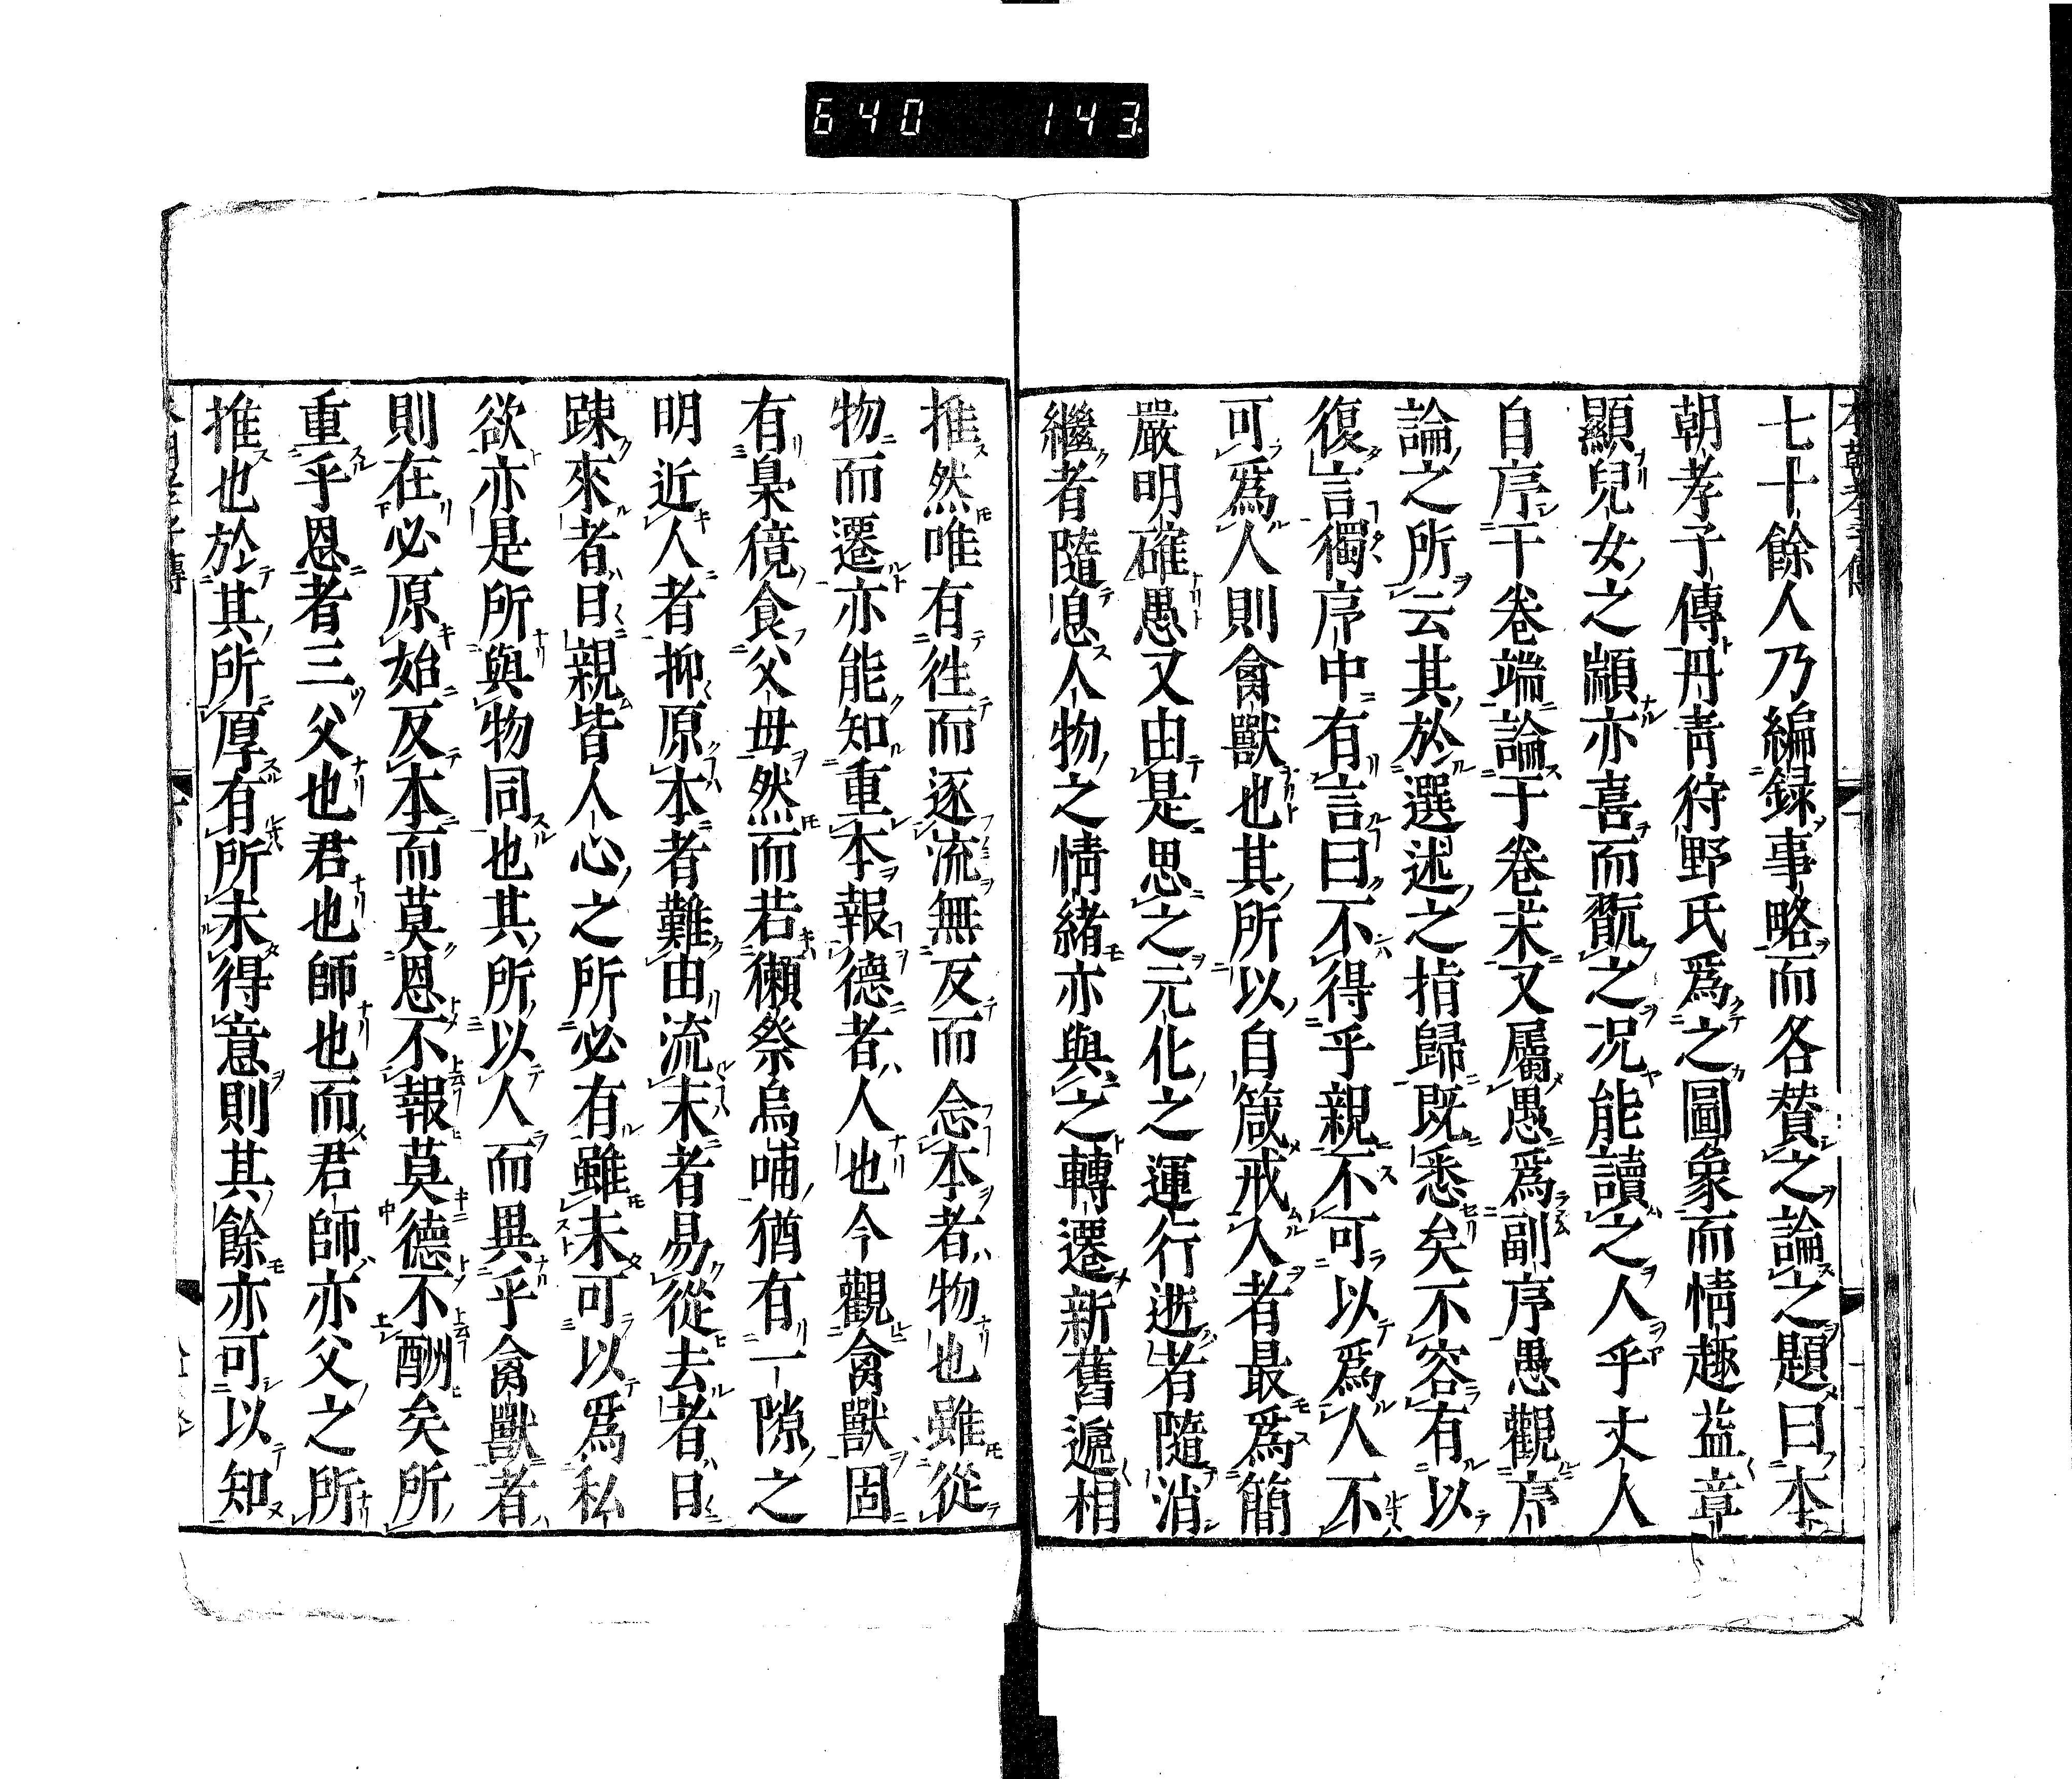 640 143
本朝孝子傳
七十餘人乃編録事略而各賛之論之題曰本
朝孝子傳丹青狩野氏爲之圖象而情趣益章
顯兒女之顓亦喜而翫之况能讀之人乎丈人
自序于卷端論于卷末又屬愚爲副序愚觀序
論之所云其於選述之指歸既悉矣不容有以
復言獨序中有言曰不得乎親不可以爲人不
可爲人則禽獸也其所以自箴戒人者最爲簡
嚴明確愚又由是思之元化之運行逝者隨消
繼者隨息人物之情緒亦與之轉遷新舊遞相
推然唯有徃而逐流無反而念本者物也雖從
物而遷亦能知重本報德者人也今觀禽獸固
有梟獍食父母然而若獺祭烏哺猶有一隙之
明近人者抑原本者難由流末者易從去者日
踈來者日親皆人心之所必有雖未可以爲私
欲亦是所與物同也其所以人而異乎禽獸者
則在必原始反本而莫恩不報莫德不酬矣所
重乎恩者三父也君也師也而君師亦父之所
推也於其所厚有所未得意則其餘亦可以知